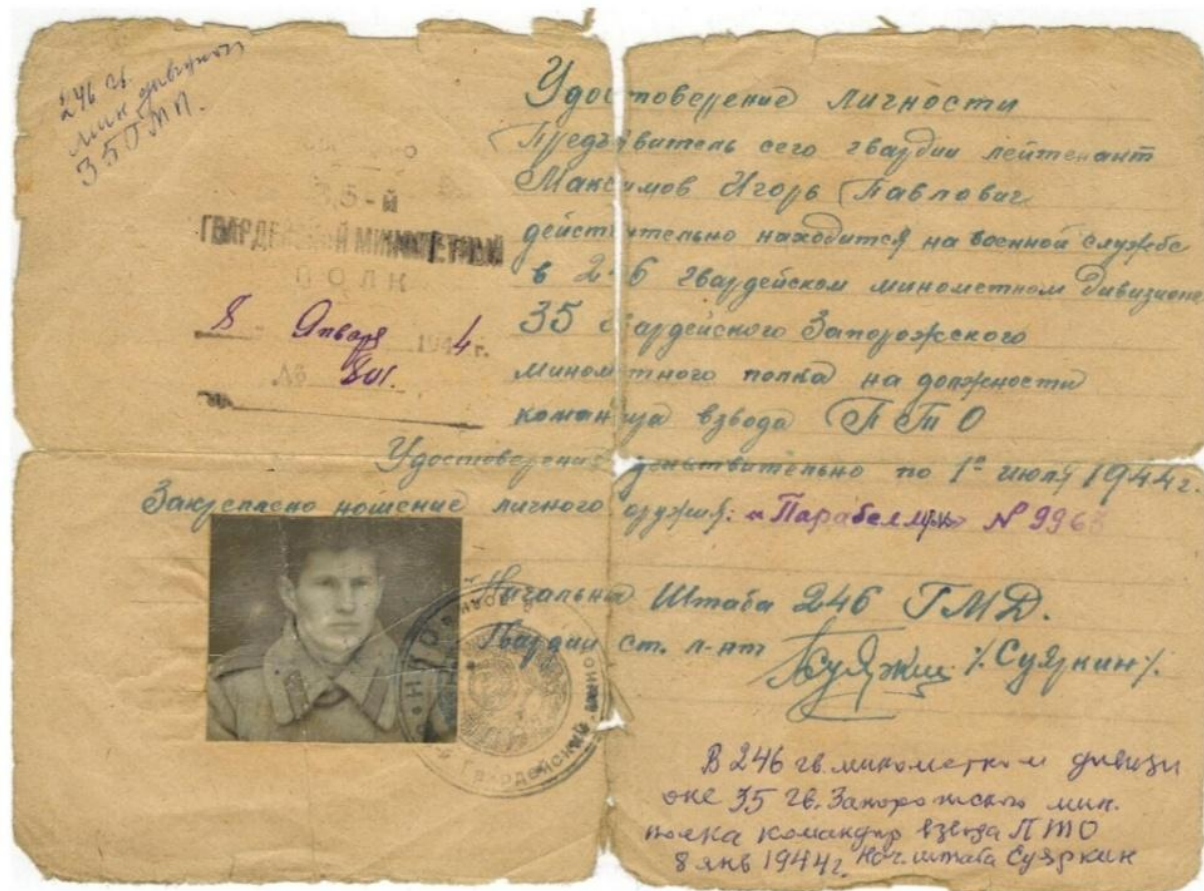 246 гв.
мин дивизион
35 ГМП.
35-й
ГВАРДЕЙСКИЙ МИНОМЕТНЫЙ
ПОЛК
8 Января 1944 г.
№ 801.
Удостоверение личности
Предъявитель сего гвардии лейтенант
Максимов Игорь Павлович
действительно находится на военной службе
в 246 гвардейском минометном дивизионе
35 гвардейского Запорожского
минометного полка на должности
командира взвода ПТО
Удостоверение действительно по 1е июля 1944 г.
Закреплено ношение личного оружия: "Парабеллум" № 996
Начальник Штаба 246 ГМД.
Гвардии ст. л-нт /Суяркин/.
Гвардейский
В 246 гв. минометном дивизи
оне 35 гв. Запорожского мин.
полка командир взвода ПТО
8 янв 1944 г. Нач. штаба Суяркин